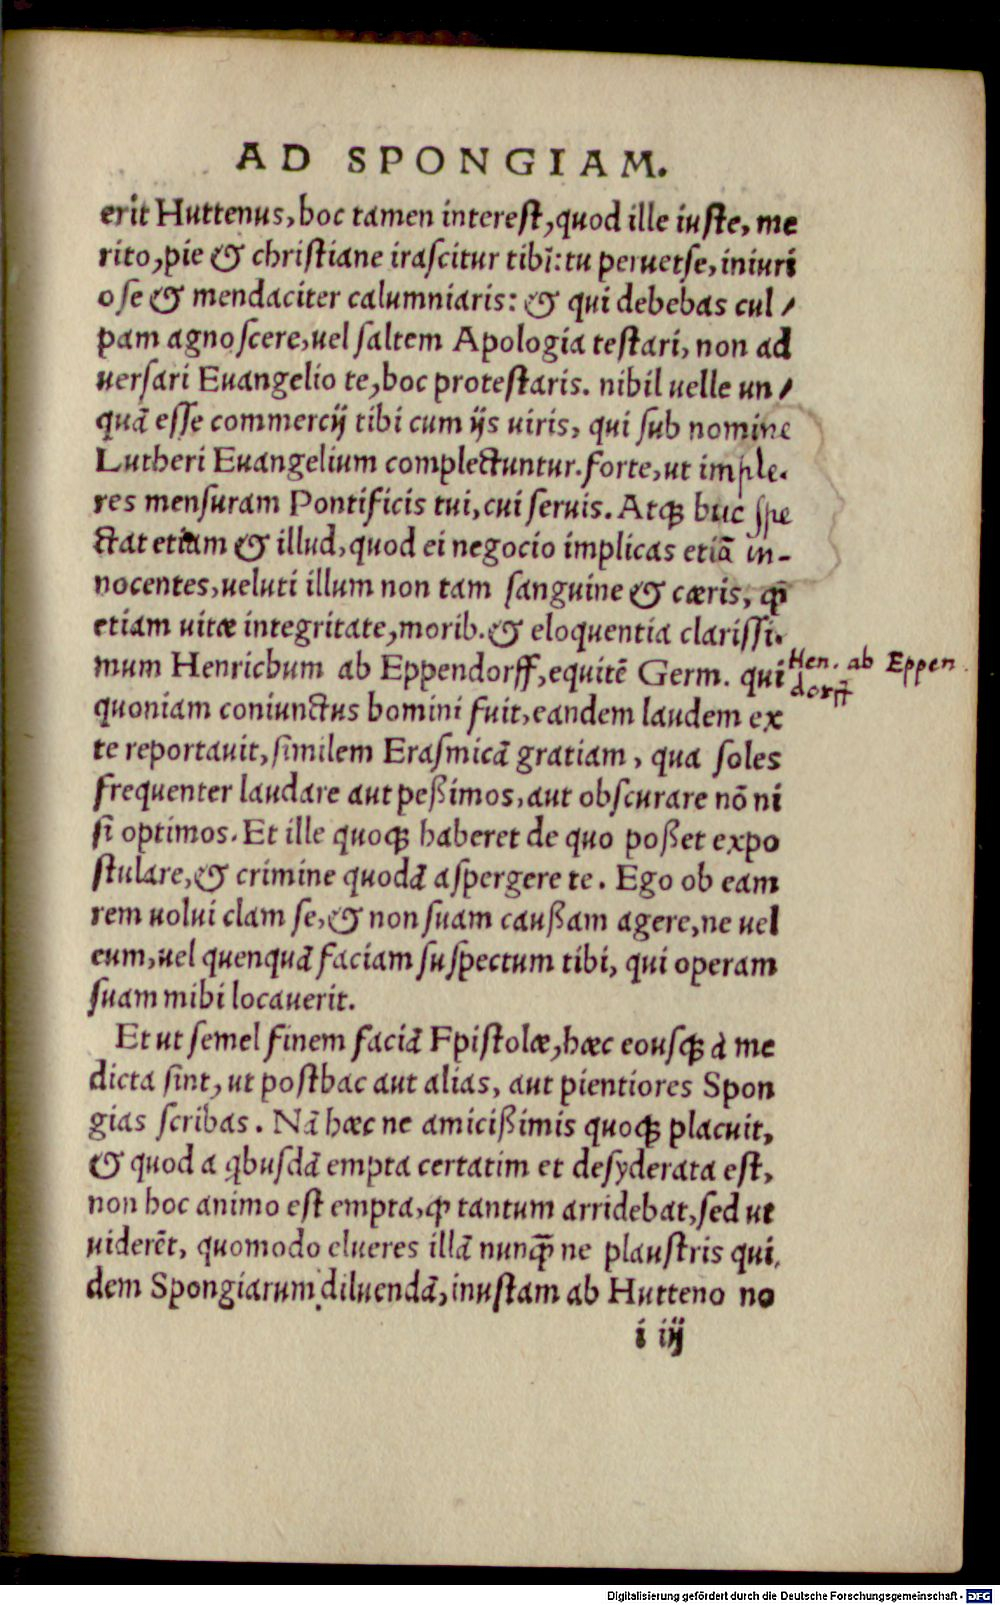 AD SPONGIAM.
erit Huttenus, hoc tamen interest, quod ille iuste, me
rito, pie & christiane irascitur tibi: tu peruerse, iniuri
ose & mendaciter calumniaris: & qui debebas cul/
pam agnoscere, uel saltem Apologia testari, non ad
uersari Euangelio te, hoc protestaris. nihil uelle un/
quā esse commercij tibi cum ijs uiris, qui sub nomine
Lutheri Euangelium complectuntur. forte, ut imple.
res mensuram Pontificis tui, cui seruis. Atqꝫ huc spe
ctat etiam & illud, quod ei negocio implicas etiā in-
nocentes, ueluti illum non tam sanguine & cæris, ꝙ̄
etiam uitæ integritate, morib. & eloquentia clarissi.
mum Henrichum ab Eppendorff, equitē Germ. qui
Hen. ab Eppen
dorff
quoniam coniunctus homini fuit, eandem laudem ex
te reportauit, similem Erasmicā gratiam, qua soles
frequenter laudare aut peßimos, aut obscurare nō ni
si optimos. Et ille quoqꝫ haberet de quo poßet expo
stulare, & crimine quodā aspergere te. Ego ob eam
rem uolui clam se, & non suam caußam agere, ne uel
eum, uel quenquā faciam suspectum tibi, qui operam
suam mihi locauerit.
Et ut semel finem faciā Epistolæ, hæc eousqꝫ à me
dicta sint, ut posthac aut alias, aut pientiores Spon
gias scribas. Nā hæc ne amicißimis quoqꝫ placuit,
& quod a qbusdā empta certatim et desyderata est,
non hoc animo est empta, ꝙ tantum arridebat, sed ut
uiderēt, quomodo elueres illā nunꝙ̄ ne plaustris qui.
dem Spongiarum diluendā, inustam ab Hutteno no
i iij
Digitalisierung gefördert durch die Deutsche Forschungsgemeinschaft - DFG